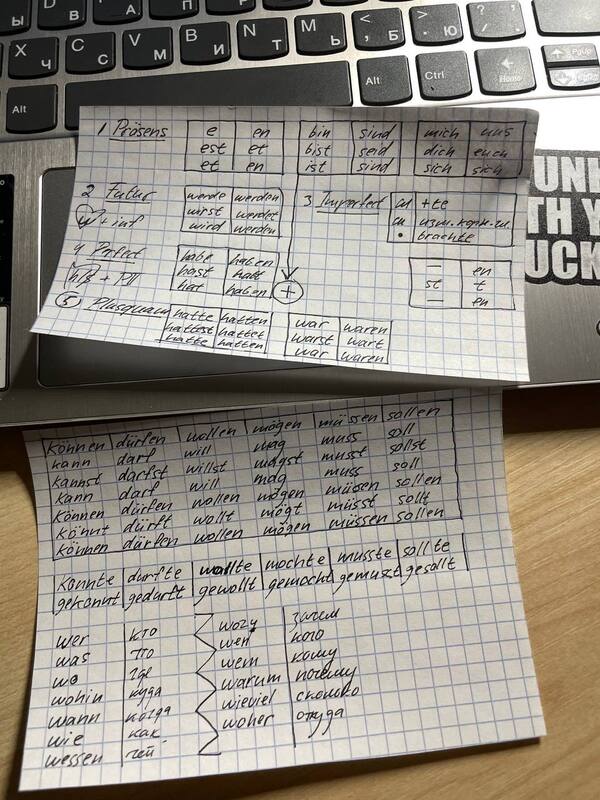 Ы В А П И Т Ь Б Ю
Я Ч С М И Т Ь , Б . Ю / .
Alt Alt Ctrl Home PgUp PgDn
1 Präsens e en bin sind mich uns
est et bist seid dich euch
et en ist sind sich sich
2 Futur werde werden 3 Imperfect сл +te
w + inf wirst werdet сил. изм. корн. гл.
wird werden • brachte
4 Perfect habe haben — en
h/s + PII hast habt st t
hat haben + — en
5 Plusquam hatte hatten war waren
hattest hattet warst wart
hatte hatten war waren
können dürfen wollen mögen müssen sollen
kann darf will mag muss soll
kannst darfst willst magst musst sollst
kann darf will mag muss soll
können dürfen wollen mögen müssen sollen
könnt dürft wollt mögt müsst sollt
können dürfen wollen mögen müssen sollen
konnte durfte wollte mochte musste sollte
gekonnt gedurft gewollt gemocht gemuszt gesollt
wer кто wozy зачем
was что wen кого
wo где wem кому
wohin куда warum почему
wann когда wieviel сколько
wie как woher откуда
wessen чей